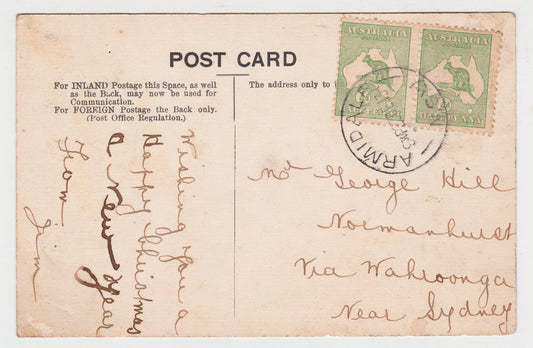 POST CARD
For INLAND Postage this Space, as well
as the Back, may now be used for
Communication.
For FOREIGN Postage the Back only.
(Post Office Regulation.)
The address only to
AUSTRALIA
HALF PENNY
AUSTRALIA
PENNY
ARMIDALE
N.S.W
Wishing you a
Happy Christmas
& New Year
From Jim
Mr George Hill
Normanhurst
Via Wahroonga
Near Sydney